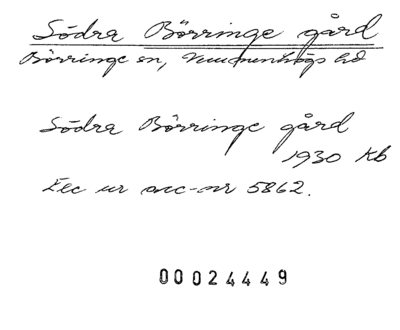 Södra Börringe gård
Börringe sn, Vemmenhögs hd
Södra Börringe gård
1930 Kb
Exc ur acc-nr 5862.
00024449